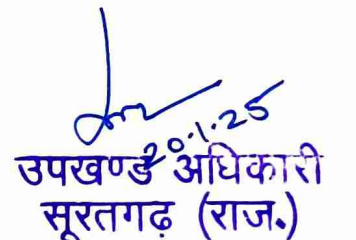 20.1.25
उपखण्ड अधिकारी
सूरतगढ़ (राज.)